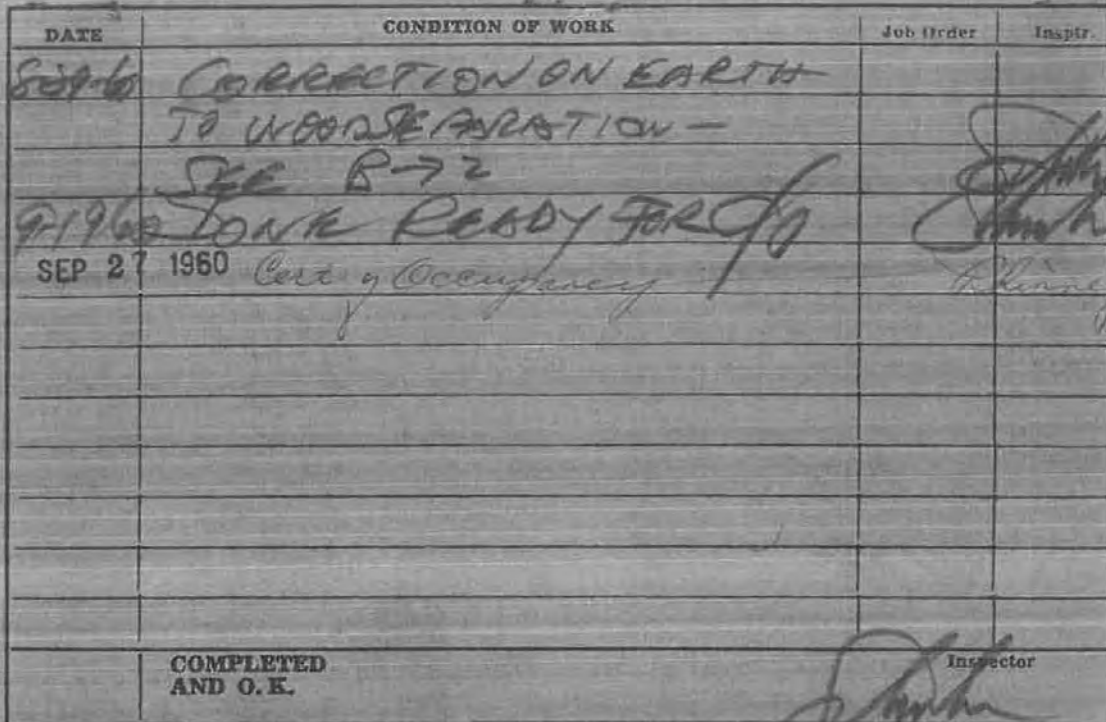 DATE CONDITION OF WORK Job Order Insptr.
CORRECTION ON EARTH
TO WOOD SEPARATION —
SEE B→2
9-19-60 DONE READY FOR C/O
SEP 27 1960 Cert of Occupancy
COMPLETED Inspector
AND O. K.